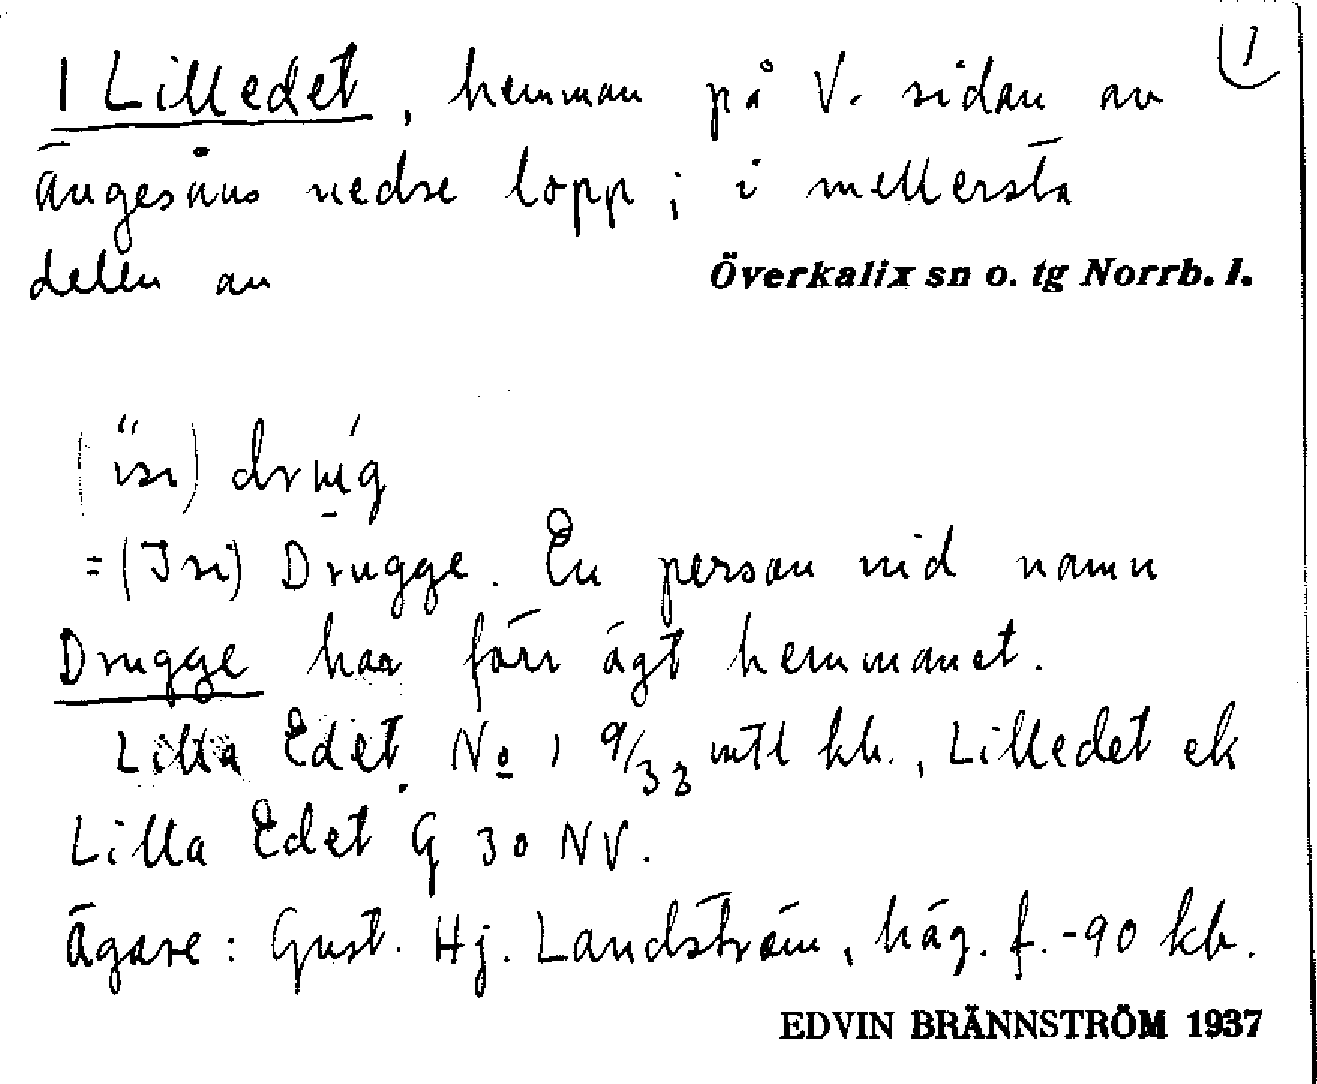 1
1 Lilledet, hemman på V. sidan av
Ängesåns nedre lopp; i mellersta
delen av
Överkalix sn o. tg Norrb. l.
= (Isri) Drugge. En person vid namn
Drugge har förr ägt hemmanet.
Lilla Edet No 1 9/32 mtl kb., Lilledet ek
Lilla Edet G 30 NV.
Ägare: Gust. Hj. Landström, häg. f. -90 kb.
EDVIN BRÄNNSTRÖM 1937